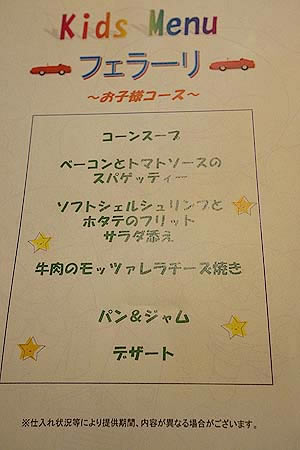 Kids Menu
フェラーリ
～お子様コース～
コーンスープ
ベーコンとトマトソースの
スパゲッティー
ソフトシェルシュリンプと
ホタテのフリット
サラダ添え
牛肉のモッツァレラチーズ焼き
パン＆ジャム
デザート
※仕入れ状況等により提供期間、内容が異なる場合がございます。